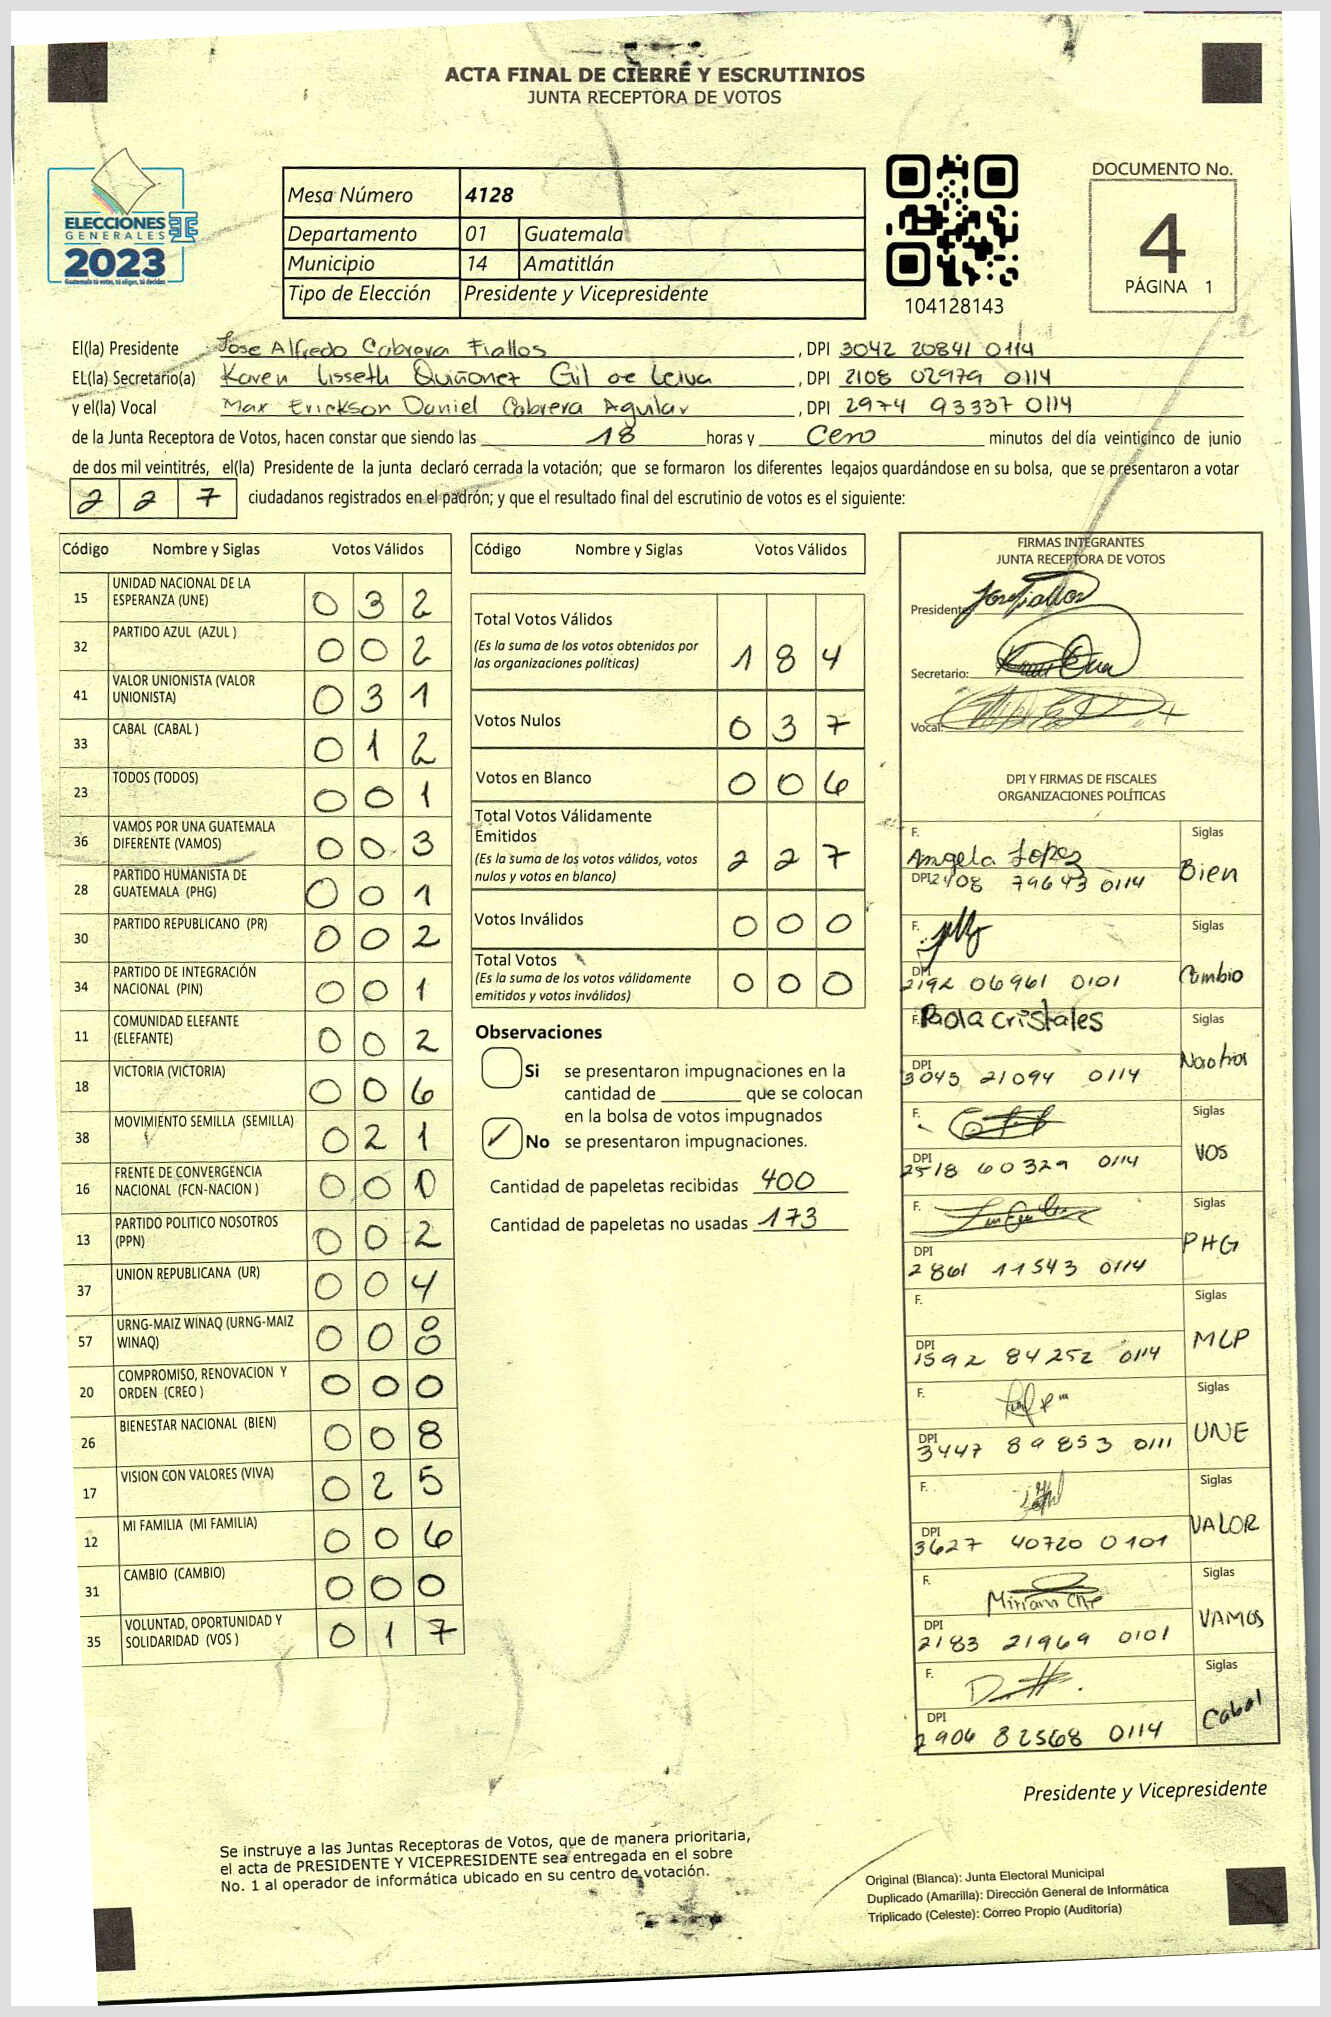 ACTA FINAL DE CIERRE Y ESCRUTINIOS
JUNTA RECEPTORA DE VOTOS
ELECCIONES
GENERALES
2023
Guatemala tú votas, tú eliges, tú decides
Mesa Número 4128
Departamento 01 Guatemala
Municipio 14 Amatitlán
Tipo de Elección Presidente y Vicepresidente
104128143
DOCUMENTO No.
4
PÁGINA 1
El(la) Presidente Jose Alfredo Cabrera Fiallos, DPI 3042 20841 0114
EL(la) Secretario(a) Karen Lisseth Quiñonez Gil de Leiva, DPI 2108 02979 0114
y el(la) Vocal Max Erickson Daniel Cabrera Aguilar, DPI 2974 93337 0114
de la Junta Receptora de Votos, hacen constar que siendo las 18 horas y Cero minutos del día veinticinco de junio
de dos mil veintitrés, el(la) Presidente de la junta declaró cerrada la votación; que se formaron los diferentes legajos guardándose en su bolsa, que se presentaron a votar
2 2 7 ciudadanos registrados en el padrón; y que el resultado final del escrutinio de votos es el siguiente:
Código Nombre y Siglas Votos Válidos
15 UNIDAD NACIONAL DE LA ESPERANZA (UNE) 0 3 2
32 PARTIDO AZUL (AZUL ) 0 0 2
41 VALOR UNIONISTA (VALOR UNIONISTA) 0 3 1
33 CABAL (CABAL ) 0 1 2
23 TODOS (TODOS) 0 0 1
36 VAMOS POR UNA GUATEMALA DIFERENTE (VAMOS) 0 0 3
28 PARTIDO HUMANISTA DE GUATEMALA (PHG) 0 0 1
30 PARTIDO REPUBLICANO (PR) 0 0 2
34 PARTIDO DE INTEGRACIÓN NACIONAL (PIN) 0 0 1
11 COMUNIDAD ELEFANTE (ELEFANTE) 0 0 2
18 VICTORIA (VICTORIA) 0 0 6
38 MOVIMIENTO SEMILLA (SEMILLA) 0 2 1
16 FRENTE DE CONVERGENCIA NACIONAL (FCN-NACION ) 0 0 0
13 PARTIDO POLITICO NOSOTROS (PPN) 0 0 2
37 UNION REPUBLICANA (UR) 0 0 4
57 URNG-MAIZ WINAQ (URNG-MAIZ WINAQ) 0 0 8
20 COMPROMISO, RENOVACION Y ORDEN (CREO ) 0 0 0
26 BIENESTAR NACIONAL (BIEN) 0 0 8
17 VISION CON VALORES (VIVA) 0 2 5
12 MI FAMILIA (MI FAMILIA) 0 0 6
31 CAMBIO (CAMBIO) 0 0 0
35 VOLUNTAD, OPORTUNIDAD Y SOLIDARIDAD (VOS ) 0 1 7
Código Nombre y Siglas Votos Válidos
Total Votos Válidos
(Es la suma de los votos obtenidos por
las organizaciones políticas) 1 8 4
Votos Nulos 0 3 7
Votos en Blanco 0 0 6
Total Votos Válidamente
Emitidos
(Es la suma de los votos válidos, votos
nulos y votos en blanco) 2 2 7
Votos Inválidos 0 0 0
Total Votos
(Es la suma de los votos válidamente
emitidos y votos inválidos) 0 0 0
Observaciones
Si se presentaron impugnaciones en la
cantidad de ________ que se colocan
en la bolsa de votos impugnados
✓ No se presentaron impugnaciones.
Cantidad de papeletas recibidas 400
Cantidad de papeletas no usadas 173
FIRMAS INTEGRANTES
JUNTA RECEPTORA DE VOTOS
Presidente:
Secretario:
Vocal:
DPI Y FIRMAS DE FISCALES
ORGANIZACIONES POLÍTICAS
F. Angela Lopez Siglas
DPI 2408 79643 0114 Bien
F. Siglas
DPI 2192 06961 0101 Cambio
F. Paola cristales Siglas
DPI 3045 21094 0114 Nosotros
F. Siglas
DPI 2518 60329 0114 VOS
F. Siglas
DPI 2861 11543 0114 PHG
F. Siglas
DPI 1592 84252 0114 MLP
F. Siglas
DPI 3447 89853 0111 UNE
F. Siglas
DPI 3627 40720 0101 VALOR
F. Miriam Siglas
DPI 2183 21969 0101 VAMOS
F. Siglas
DPI 2906 82568 0114 Cabal
Presidente y Vicepresidente
Se instruye a las Juntas Receptoras de Votos, que de manera prioritaria,
el acta de PRESIDENTE Y VICEPRESIDENTE sea entregada en el sobre
No. 1 al operador de informática ubicado en su centro de votación.
Original (Blanca): Junta Electoral Municipal
Duplicado (Amarilla): Dirección General de Informática
Triplicado (Celeste): Correo Propio (Auditoría)